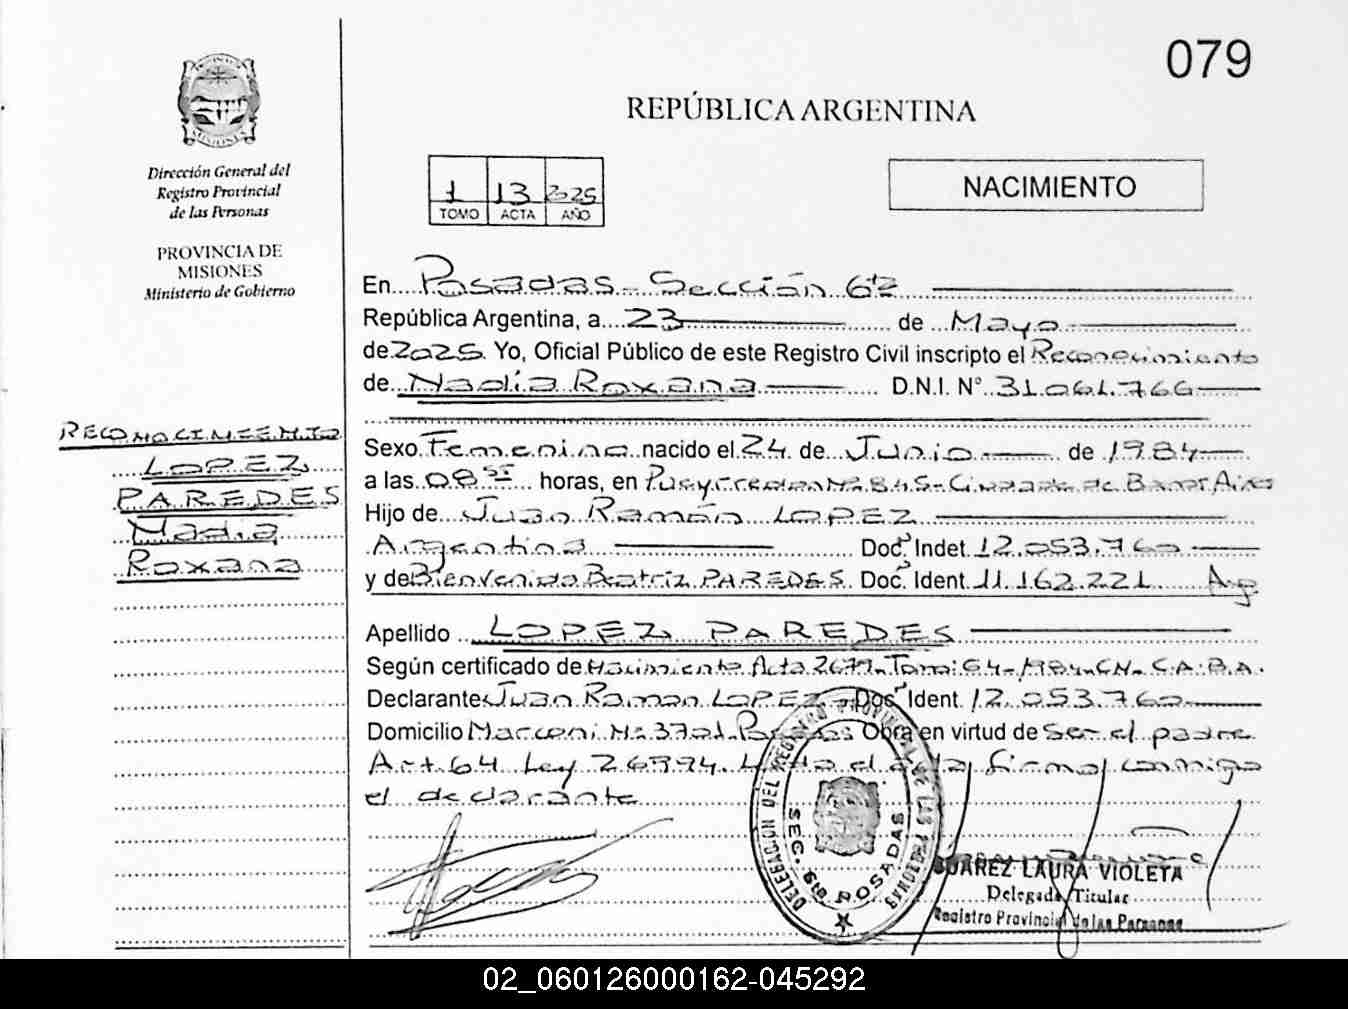 079
REPÚBLICA ARGENTINA
PROVINCIA
MISIONES
Dirección General del
Registro Provincial
de las Personas
PROVINCIA DE
MISIONES
Ministerio de Gobierno
1 13 2025
TOMO ACTA AÑO
NACIMIENTO
En Posadas - Sección 6ta
República Argentina, a 23 de Mayo
de 2025. Yo, Oficial Público de este Registro Civil inscripto el Reconocimiento
de Nadia Roxana D.N.I. N° 31.061.766
RECONOCIMIENTO
LOPEZ
PAREDES
Nadia
Roxana
Sexo Femenino nacido el 24 de Junio de 1984
a las 08 horas, en Pueyrredon N° 845 - Ciudad de Buenos Aires
Hijo de Juan Ramón LOPEZ
Argentina Doc. Indet 12.053.760
y de Bienvenida Beatriz PAREDES Doc. Ident. 11.162.221 Arg
Apellido LOPEZ PAREDES
Según certificado de Nacimiento Acta 2679 - Tomo: 64 - 1984 - CN - C.A.B.A.
Declarante Juan Ramon LOPEZ Doc. Ident. 12.053.760
Domicilio Marconi N° 3701 Posadas Obra en virtud de Ser el padre
Art. 64 Ley 26994. Leida el acta firma conmigo
el declarante
DELEGACION DEL REGISTRO PROVINCIAL DE LAS PERSONAS
SEC. 6ta POSADAS
SUAREZ LAURA VIOLETA
Delegada Titular
Registro Provincial de las Personas
02_060126000162-045292